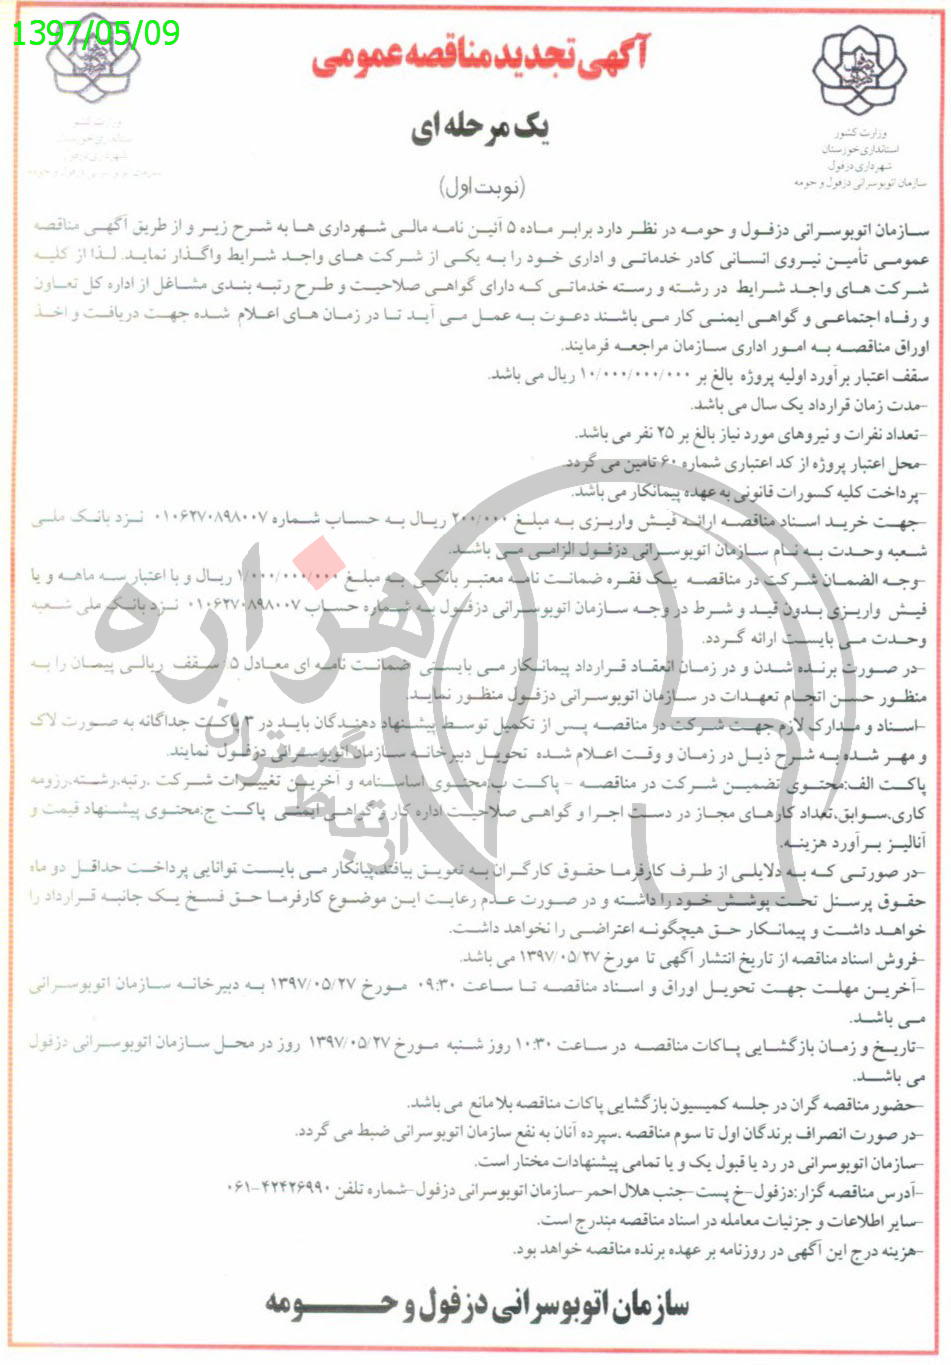 1397/05/09
آگهی تجدید مناقصه عمومی
یک مرحله ای
(نوبت اول)
وزارت کشور
استانداری خوزستان
شهرداری دزفول
سازمان اتوبوسرانی دزفول و حومه
سازمان اتوبوسرانی دزفول و حومه در نظر دارد برابر ماده ۵ آئین نامه مالی شهرداری ها به شرح زیر و از طریق آگهی مناقصه
عمومی تأمین نیروی انسانی کادر خدماتی و اداری خود را به یکی از شرکت های واجد شرایط واگذار نماید. لذا از کلیه
شرکت های واجد شرایط در رشته و رسته خدماتی که دارای گواهی صلاحیت و طرح رتبه بندی مشاغل از اداره کل تعاون
و رفاه اجتماعی و گواهی ایمنی کار می باشند دعوت به عمل می آید تا در زمان های اعلام شده جهت دریافت و اخذ
اوراق مناقصه به امور اداری سازمان مراجعه فرمایند.
سقف اعتبار برآورد اولیه پروژه بالغ بر ۱۰/۰۰۰/۰۰۰/۰۰۰ ریال می باشد.
-مدت زمان قرارداد یک سال می باشد.
-تعداد نفرات و نیروهای مورد نیاز بالغ بر ۲۵ نفر می باشد.
-محل اعتبار پروژه از کد اعتباری شماره ۶۰ تامین می گردد.
-پرداخت کلیه کسورات قانونی به عهده پیمانکار می باشد.
-جهت خرید اسناد مناقصه ارائه فیش واریزی به مبلغ ۲۰۰/۰۰۰ ریال به حساب شماره ۰۱۰۶۲۷۰۸۹۸۰۰۷ نزد بانک ملی
شعبه وحدت به نام سازمان اتوبوسرانی دزفول الزامی می باشد.
-وجه الضمان شرکت در مناقصه یک فقره ضمانت نامه معتبر بانکی به مبلغ ۱/۰۰۰/۰۰۰/۰۰۰ ریال و با اعتبار سه ماهه و یا
فیش واریزی بدون قید و شرط در وجه سازمان اتوبوسرانی دزفول به شماره حساب ۰۱۰۶۲۷۰۸۹۸۰۰۷ نزد بانک ملی شعبه
وحدت می بایست ارائه گردد.
-در صورت برنده شدن و در زمان انعقاد قرارداد پیمانکار می بایستی ضمانت نامه ای معادل ۵٪ سقف ریالی پیمان را به
منظور حسن انجام تعهدات در سازمان اتوبوسرانی دزفول منظور نماید.
-اسناد و مدارک لازم جهت شرکت در مناقصه پس از تکمیل توسط پیشنهاد دهندگان باید در ۳ پاکت جداگانه به صورت لاک
و مهر شده به شرح ذیل در زمان و وقت اعلام شده تحویل دبیرخانه سازمان اتوبوسرانی دزفول نمایند.
پاکت الف:محتوی تضمین شرکت در مناقصه - پاکت ب:محتوی اساسنامه و آخرین تغییرات شرکت ،رتبه،رشته،رزومه
کاری،سوابق،تعداد کارهای مجاز در دست اجرا و گواهی صلاحیت اداره کار و گواهی ایمنی پاکت ج:محتوی پیشنهاد قیمت و
آنالیز برآورد هزینه.
-در صورتی که به دلایلی از طرف کارفرما حقوق کارگران به تعویق بیافتد،پیانکار می بایست توانایی پرداخت حداقل دو ماه
حقوق پرسنل تحت پوشش خود را داشته و در صورت عدم رعایت این موضوع کارفرما حق فسخ یک جانبه قرارداد را
خواهد داشت و پیمانکار حق هیچگونه اعتراضی را نخواهد داشت.
-فروش اسناد مناقصه از تاریخ انتشار آگهی تا مورخ ۱۳۹۷/۰۵/۲۷ می باشد.
-آخرین مهلت جهت تحویل اوراق و اسناد مناقصه تا ساعت ۰۹:۳۰ مورخ ۱۳۹۷/۰۵/۲۷ به دبیرخانه سازمان اتوبوسرانی
می باشد.
-تاریخ و زمان بازگشایی پاکات مناقصه در ساعت ۱۰:۳۰ روز شنبه مورخ ۱۳۹۷/۰۵/۲۷ روز در محل سازمان اتوبوسرانی دزفول
می باشد.
-حضور مناقصه گران در جلسه کمیسیون بازگشایی پاکات مناقصه بلامانع می باشد.
-در صورت انصراف برندگان اول تا سوم مناقصه ،سپرده آنان به نفع سازمان اتوبوسرانی ضبط می گردد.
-سازمان اتوبوسرانی در رد یا قبول یک و یا تمامی پیشنهادات مختار است.
-آدرس مناقصه گزار:دزفول-خ پست-جنب هلال احمر-سازمان اتوبوسرانی دزفول-شماره تلفن ۴۲۴۲۶۹۹۰-۰۶۱
-سایر اطلاعات و جزئیات معامله در اسناد مناقصه مندرج است.
-هزینه درج این آگهی در روزنامه بر عهده برنده مناقصه خواهد بود.
سازمان اتوبوسرانی دزفول و حومه
هزاره